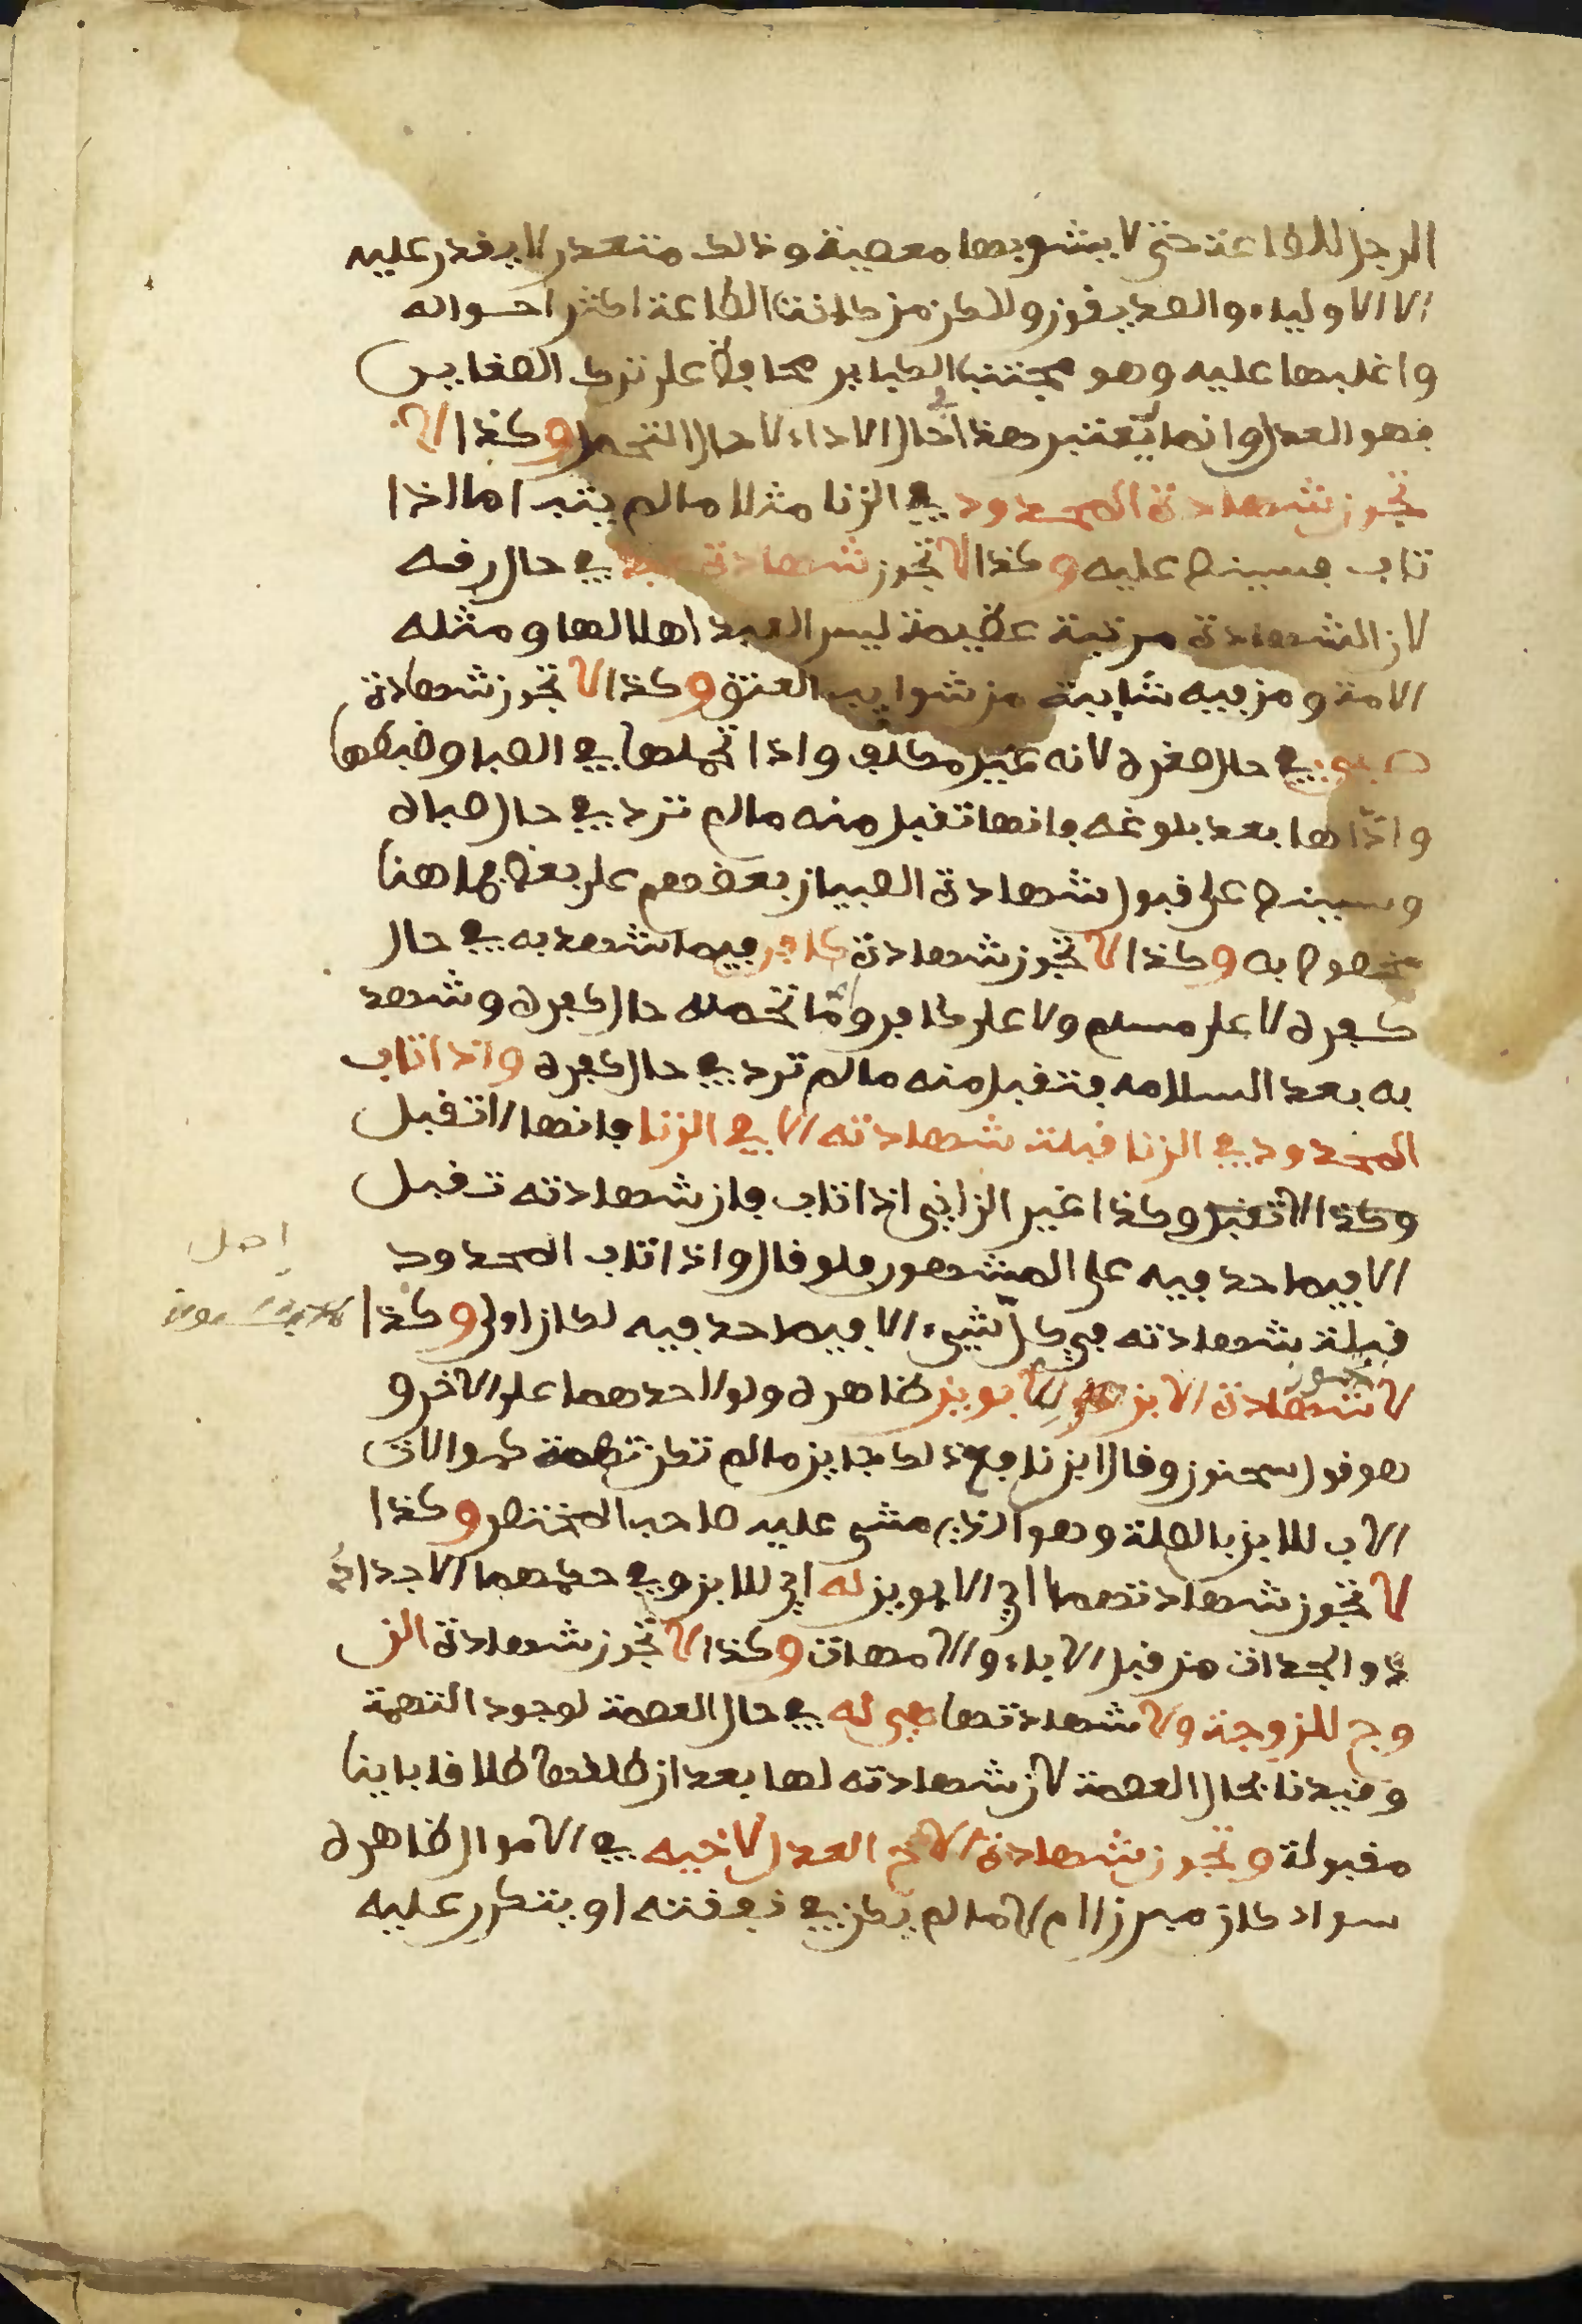 الرجل للطاعة حتى لا يشوبها معصية وذلك متعذر لا يقدر عليه
الا الاولياء والصديقون ولاكن من كانت الطاعة اكثر احواله
واغلبها عليه وهو مجتنب الكباير محافظ على ترك الصغاير
فهو العدل وانما يعتبر هذا في حال الاداء لا حال التحمل وكذا لا
تجوز شهادة المحدود في الزنا مثلا ما لم يتب اما اذا
تاب فسينص عليه وكذا لا تجوز شهادة عبد في حال رقه
لان الشهادة مرتبة عظيمة ليس العبد اهلا لها ومثله
الامة ومن فيه شايبة من شوايب العتق وكذا لا تجوز شهادة
صبي في حال صغره لانه غير مكلف واذا تحملها في الصبا وضبطها
واداها بعد بلوغه فانها تقبل منه ما لم ترد في حال صباه
وسينص على قبول شهادة الصبيان بعضهم على بعض فما هنا
مخصوص به وكذا لا تجوز شهادة كافر فيما شهد به في حال
كفره لا على مسلم ولا على كافر وما تحمله حال كفره وشهد
به بعد السلامه فتقبل منه ما لم ترد في حال كفره واذا تاب
المحدود في الزنا قبلت شهادته الا في الزنا فانها لا تقبل
وكذا لا تقبل وكذا غير الزاني اذا تاب فان شهادته تقبل
الا فيما حد فيه على المشهور فلو قال واذا تاب المحدود
قبلت شهادته في كل شيء الا فيما حد فيه لكان اولى وكذا
لا تجوز شهادة الابن للابوين ظاهره ولو لاحدهما على الاخر و
هو قول سحنون وقال ابن نافع ذلك جايز ما لم تكن تهمة كموالات
الاب للابن بالصلة وهو الذي مشى عليه صاحب المختصر وكذا
لا تجوز شهادتهما اي الابوين له اي للابن وفي حكمهما الاجداد
والجدات من قبل الاباء والامهات وكذا لا تجوز شهادة الز
وج للزوجة ولا شهادتها هي له في حال العصمة لوجود التهمة
وقيدنا بحال العصمة لان شهادته لها بعد ان طلقها طلاقا باينا
مقبولة وتجوز شهادة الاخ العدل لاخيه في الاموال ظاهره
سواء كان مبرزا ام لا ما لم يكن في نفقته او يتكرر عليه
اصل